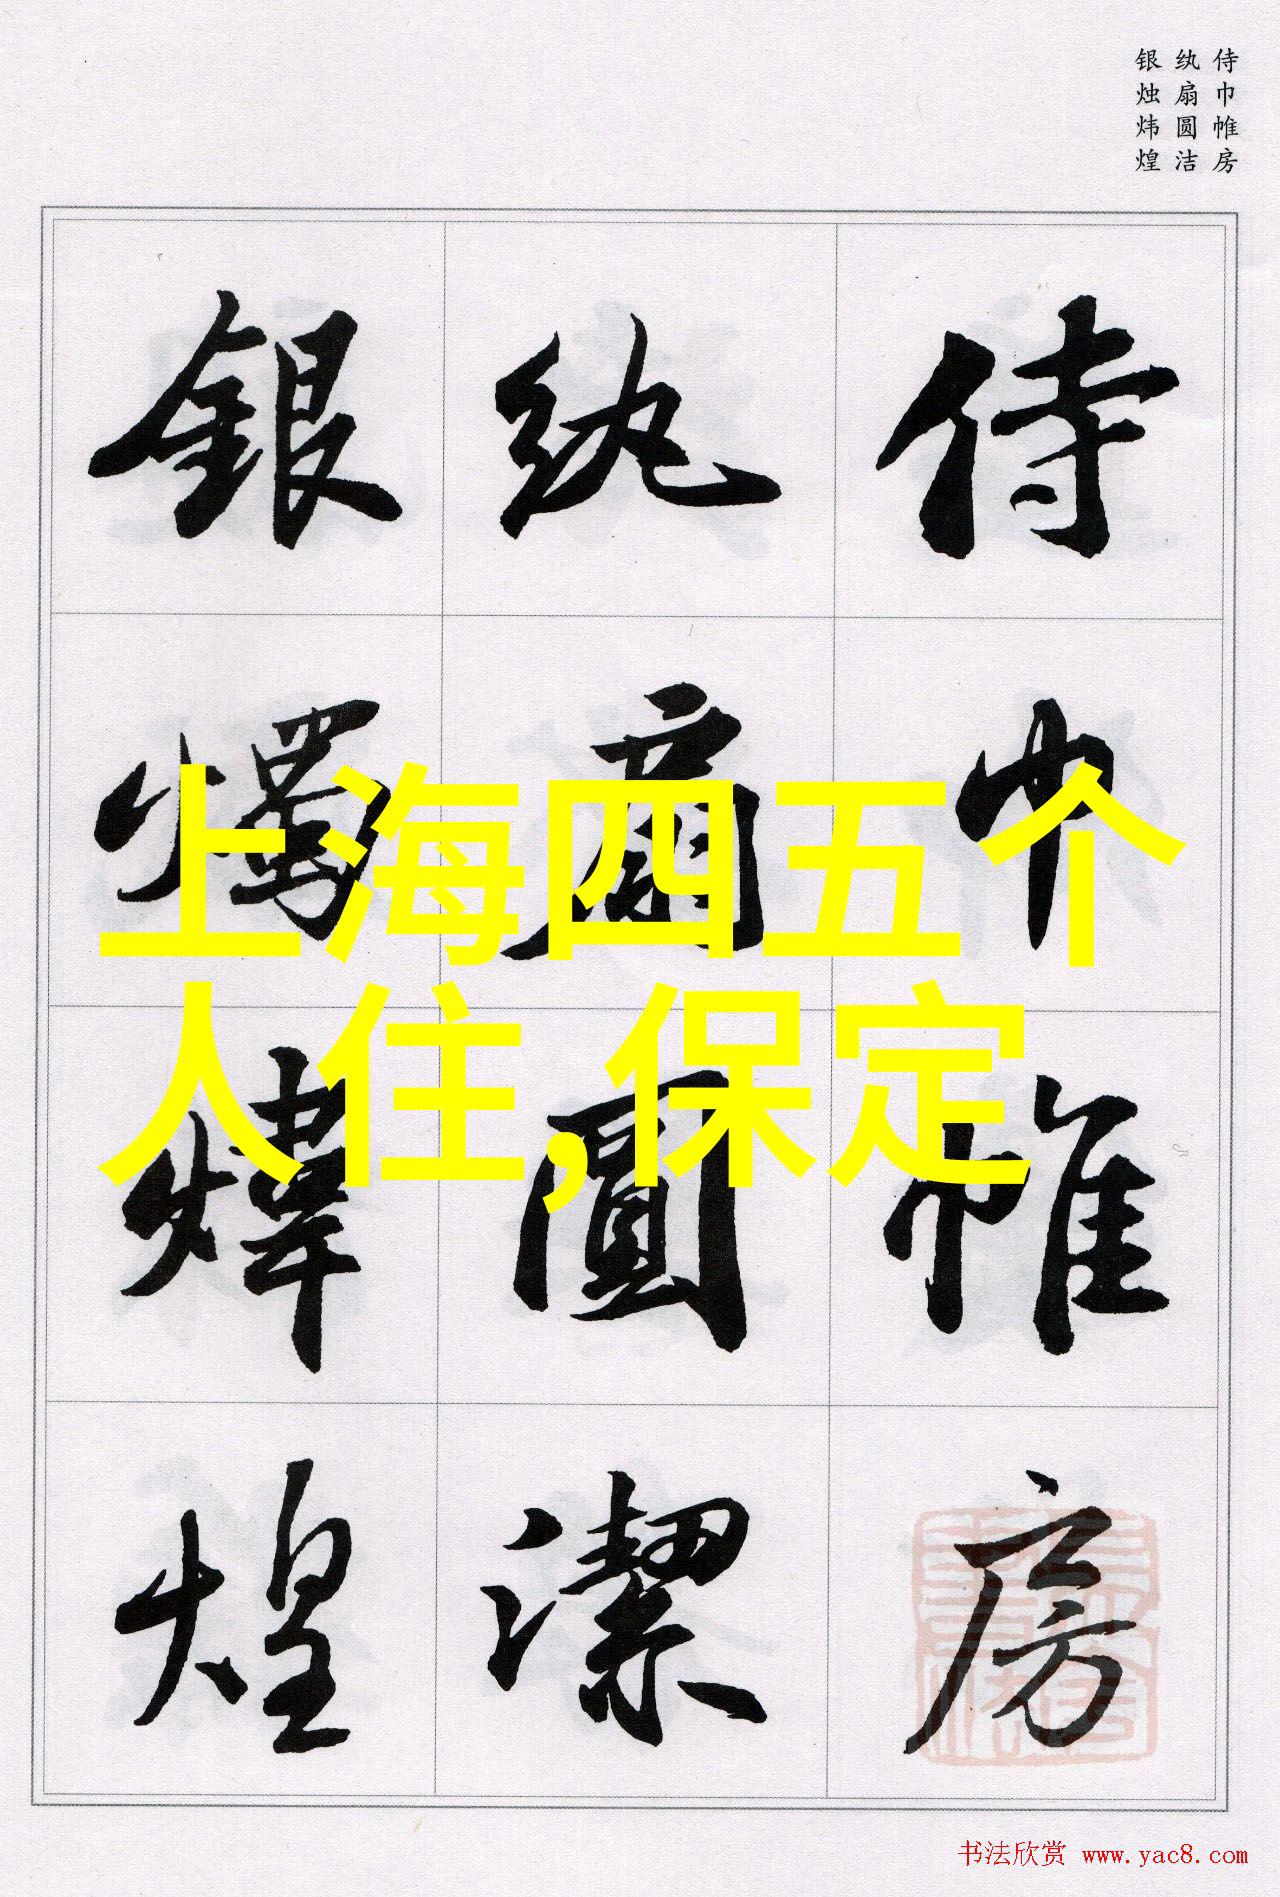 侍巾帷房
纨扇圆洁
银烛炜煌
侍巾帷房
纨扇圓潔
銀燭煒煌
上海四五个
人住,保定
书法欣赏 www.yac8.com